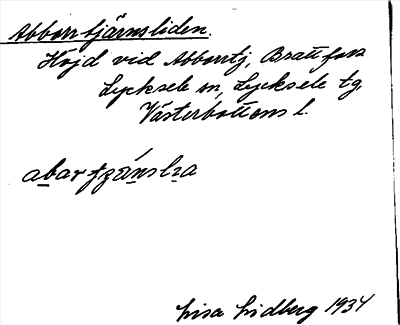 Abborrtjärnsliden.
Höjd vid Abborrtj, Brattfors
Lycksele sn, Lycksele tg.
Västerbottens l.
Lisa Lidberg 1934